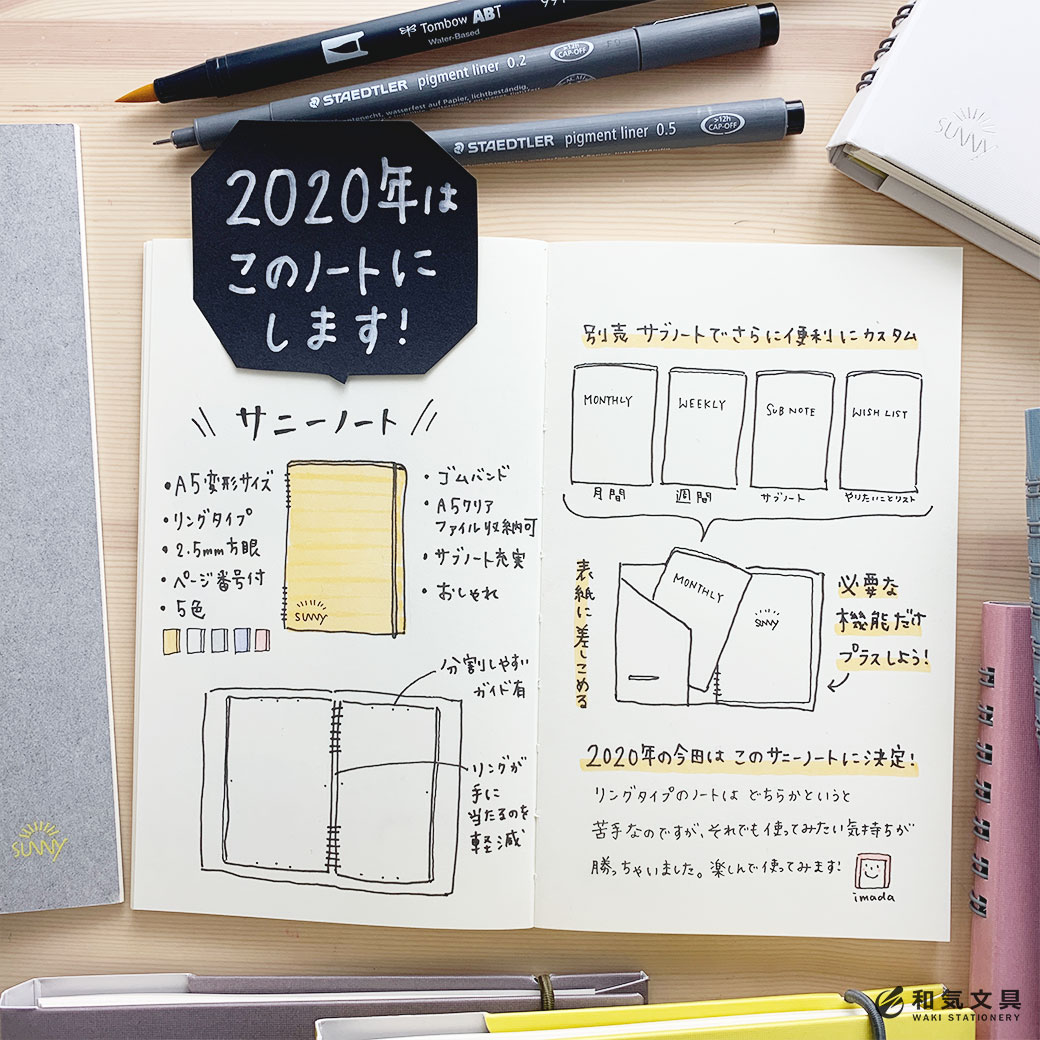 Tombow ABT
Water-Based
STAEDTLER pigment liner 0.2
>12h
CAP-OFF
STAEDTLER pigment liner 0.5
>12h
CAP-OFF
SUNNY
2020年は
このノートに
します!
サニーノート
・A5変形サイズ
・リングタイプ
・2.5mm方眼
・ページ番号付
・5色
SUNNY
・ゴムバンド
・A5クリア
ファイル収納可
・サブノート充実
・おしゃれ
分割しやすい
ガイド有
リングが
手に
当たるのを
軽減
別売 サブノートでさらに便利にカスタム
MONTHLY
WEEKLY
SUB NOTE
WISH LIST
月間
週間
サブノート
やりたいことリスト
表紙に差しこめる
MONTHLY
SUNNY
必要な
機能だけ
プラスしよう!
2020年の今田は このサニーノートに決定!
リングタイプのノートは どちらかというと
苦手なのですが、それでも使ってみたい気持ちが
勝っちゃいました。楽しんで使ってみます!
imada
SUNNY
和気文具
WAKI STATIONERY